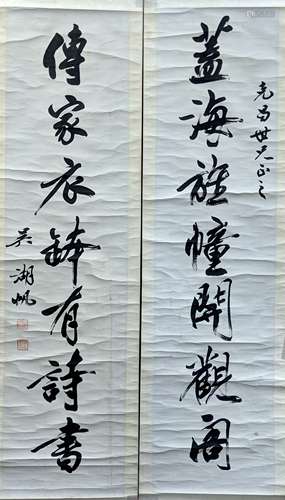 克昌世兄正之
蓋海旌幢開觀閣
傳家衣鉢有詩書
吳湖帆